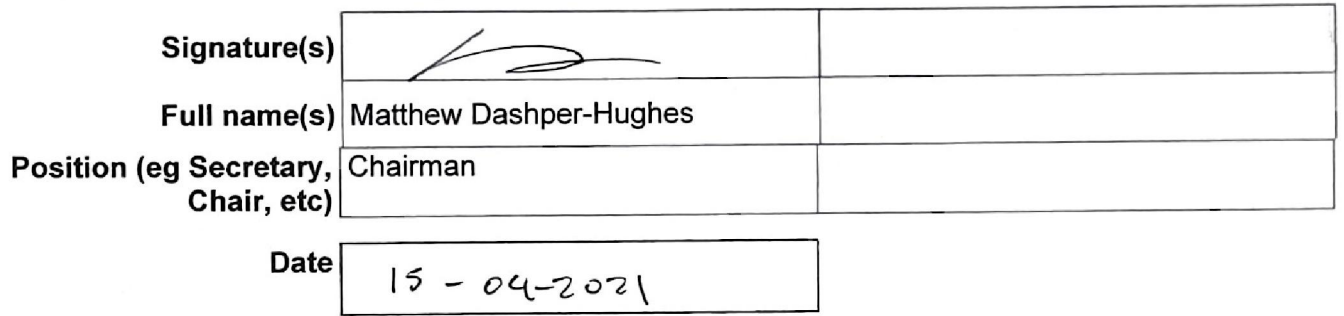 Signature(s)
Full name(s) Matthew Dashper-Hughes
Position (eg Secretary, Chairman
Chair, etc)
Date 15 - 04-2021